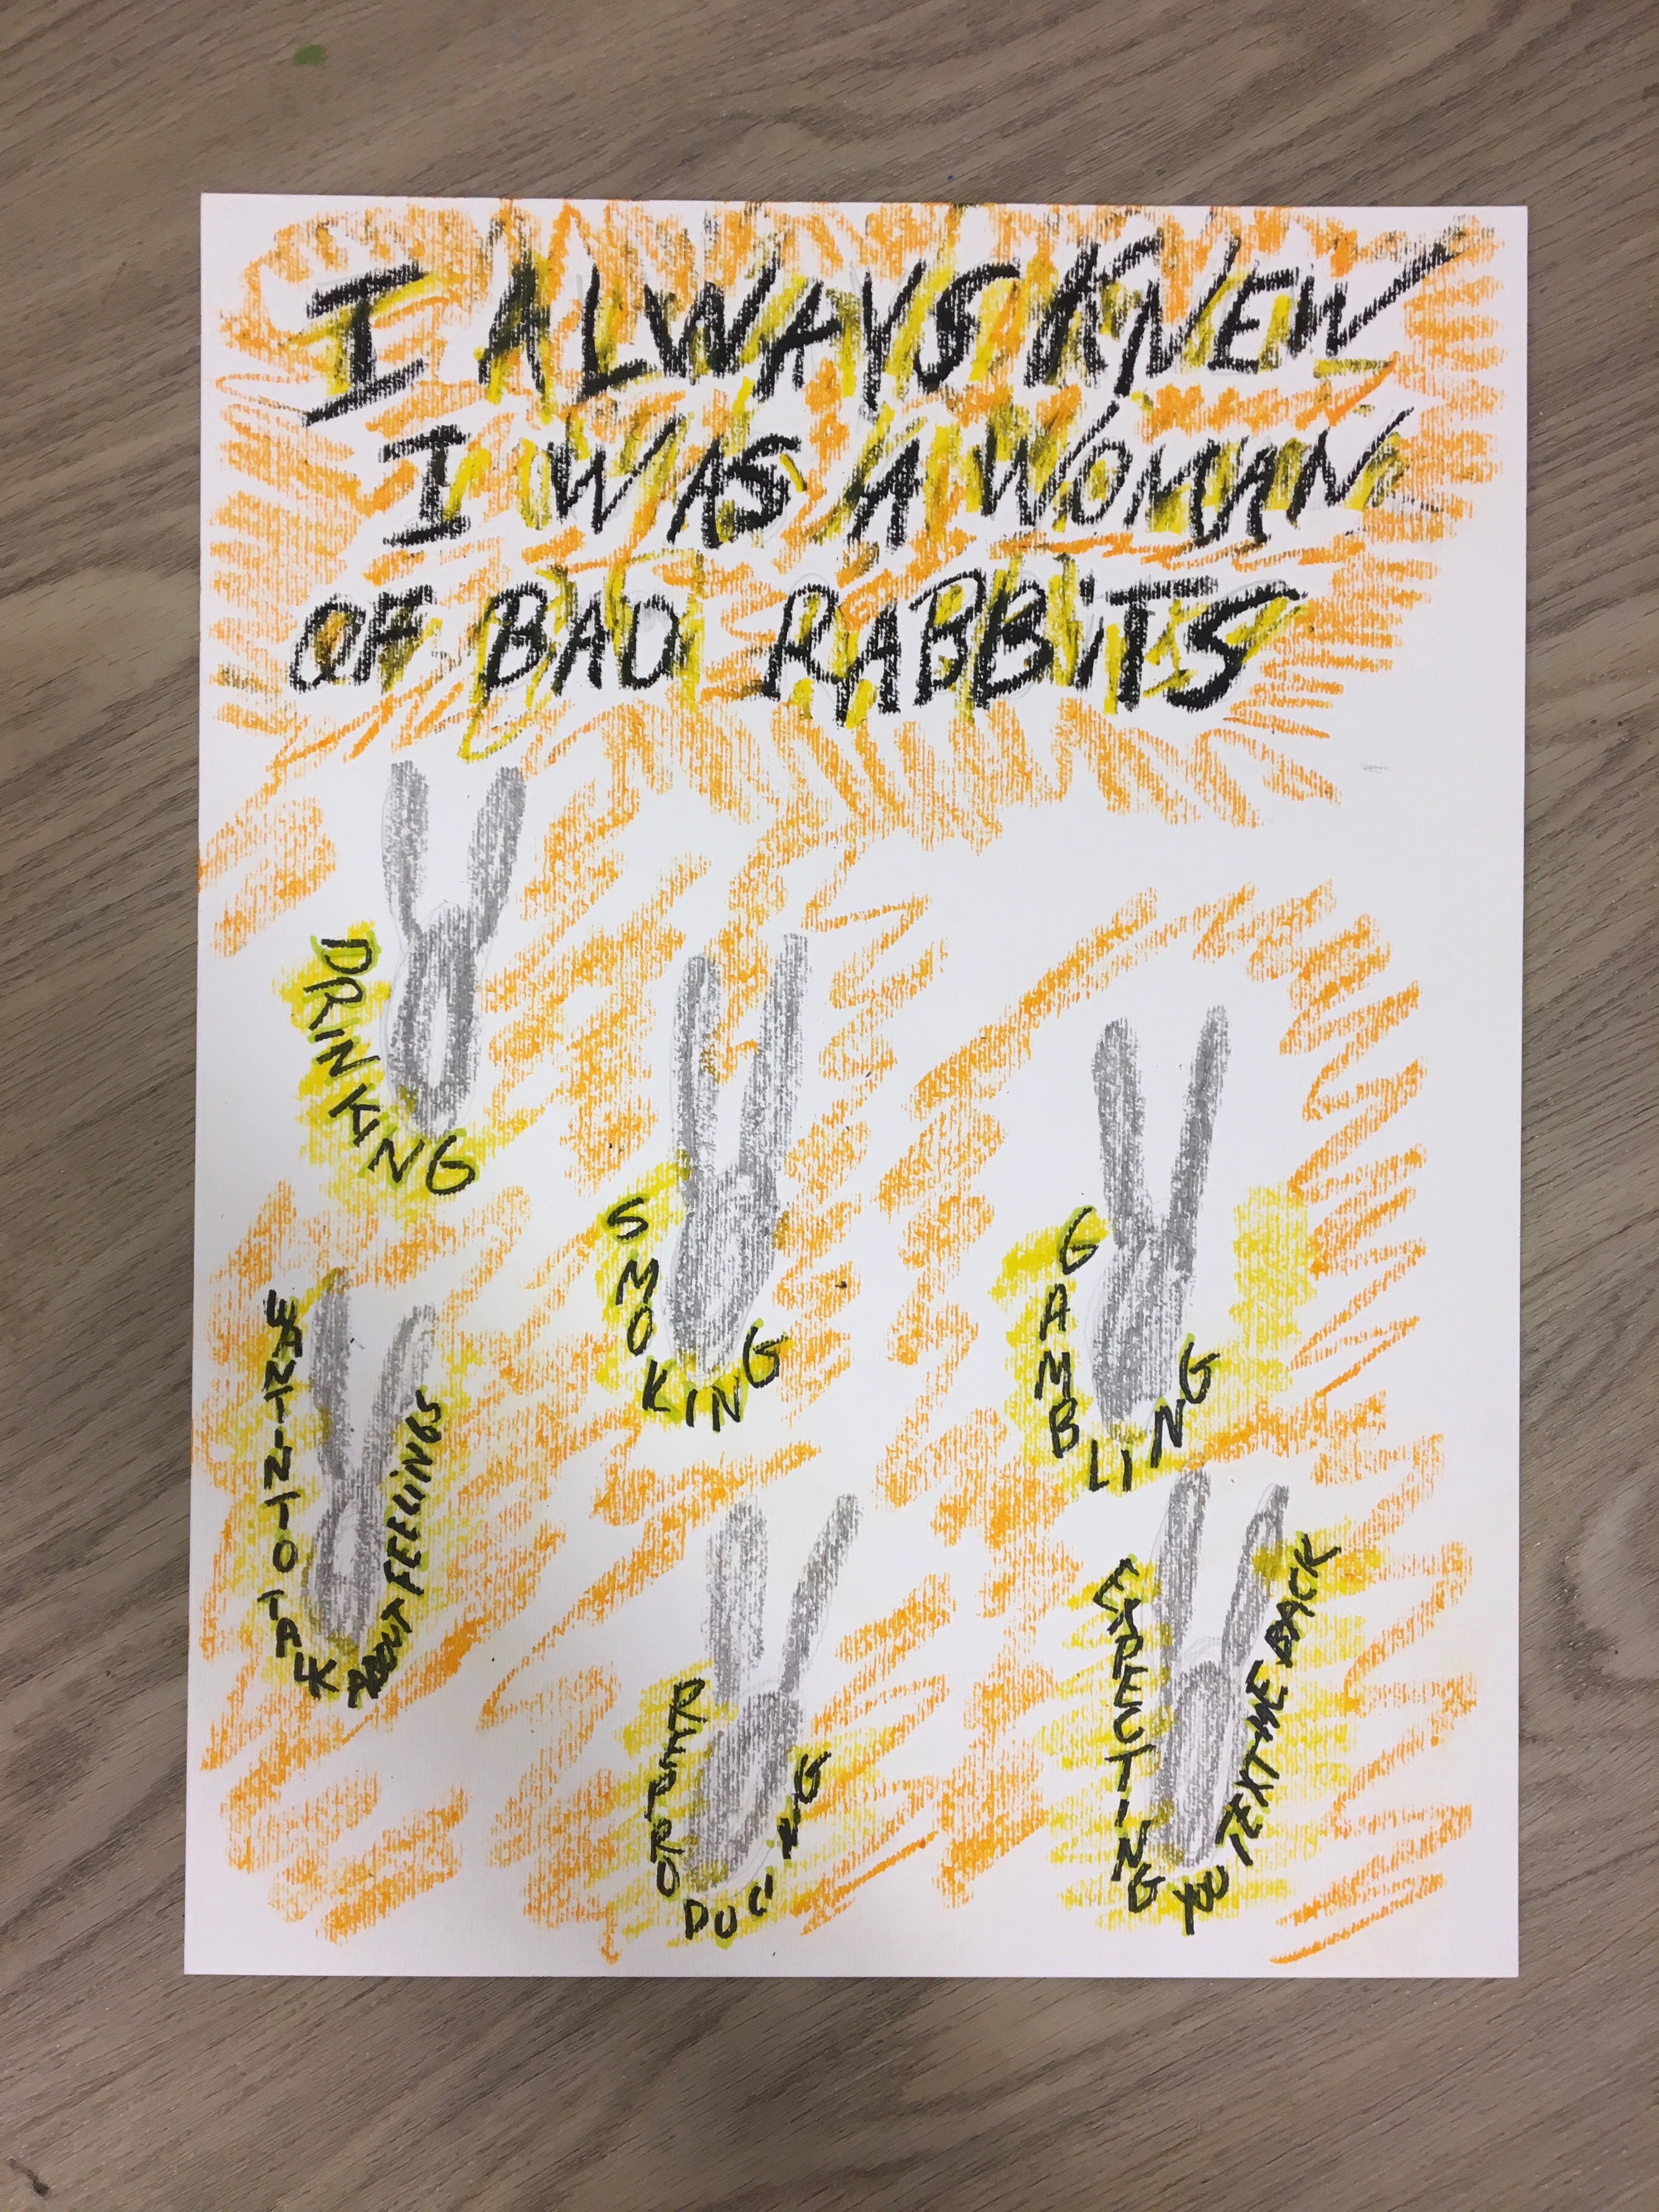 I ALWAYS KNEW
I WAS A WOMAN
OF BAD RABBiTS
DRINKING
SMOKING
GAMBLING
WANTING TO TALK ABOUT FEELiNGS
REPRODUCiNG
EXPECTING YOU TEXT ME BACK